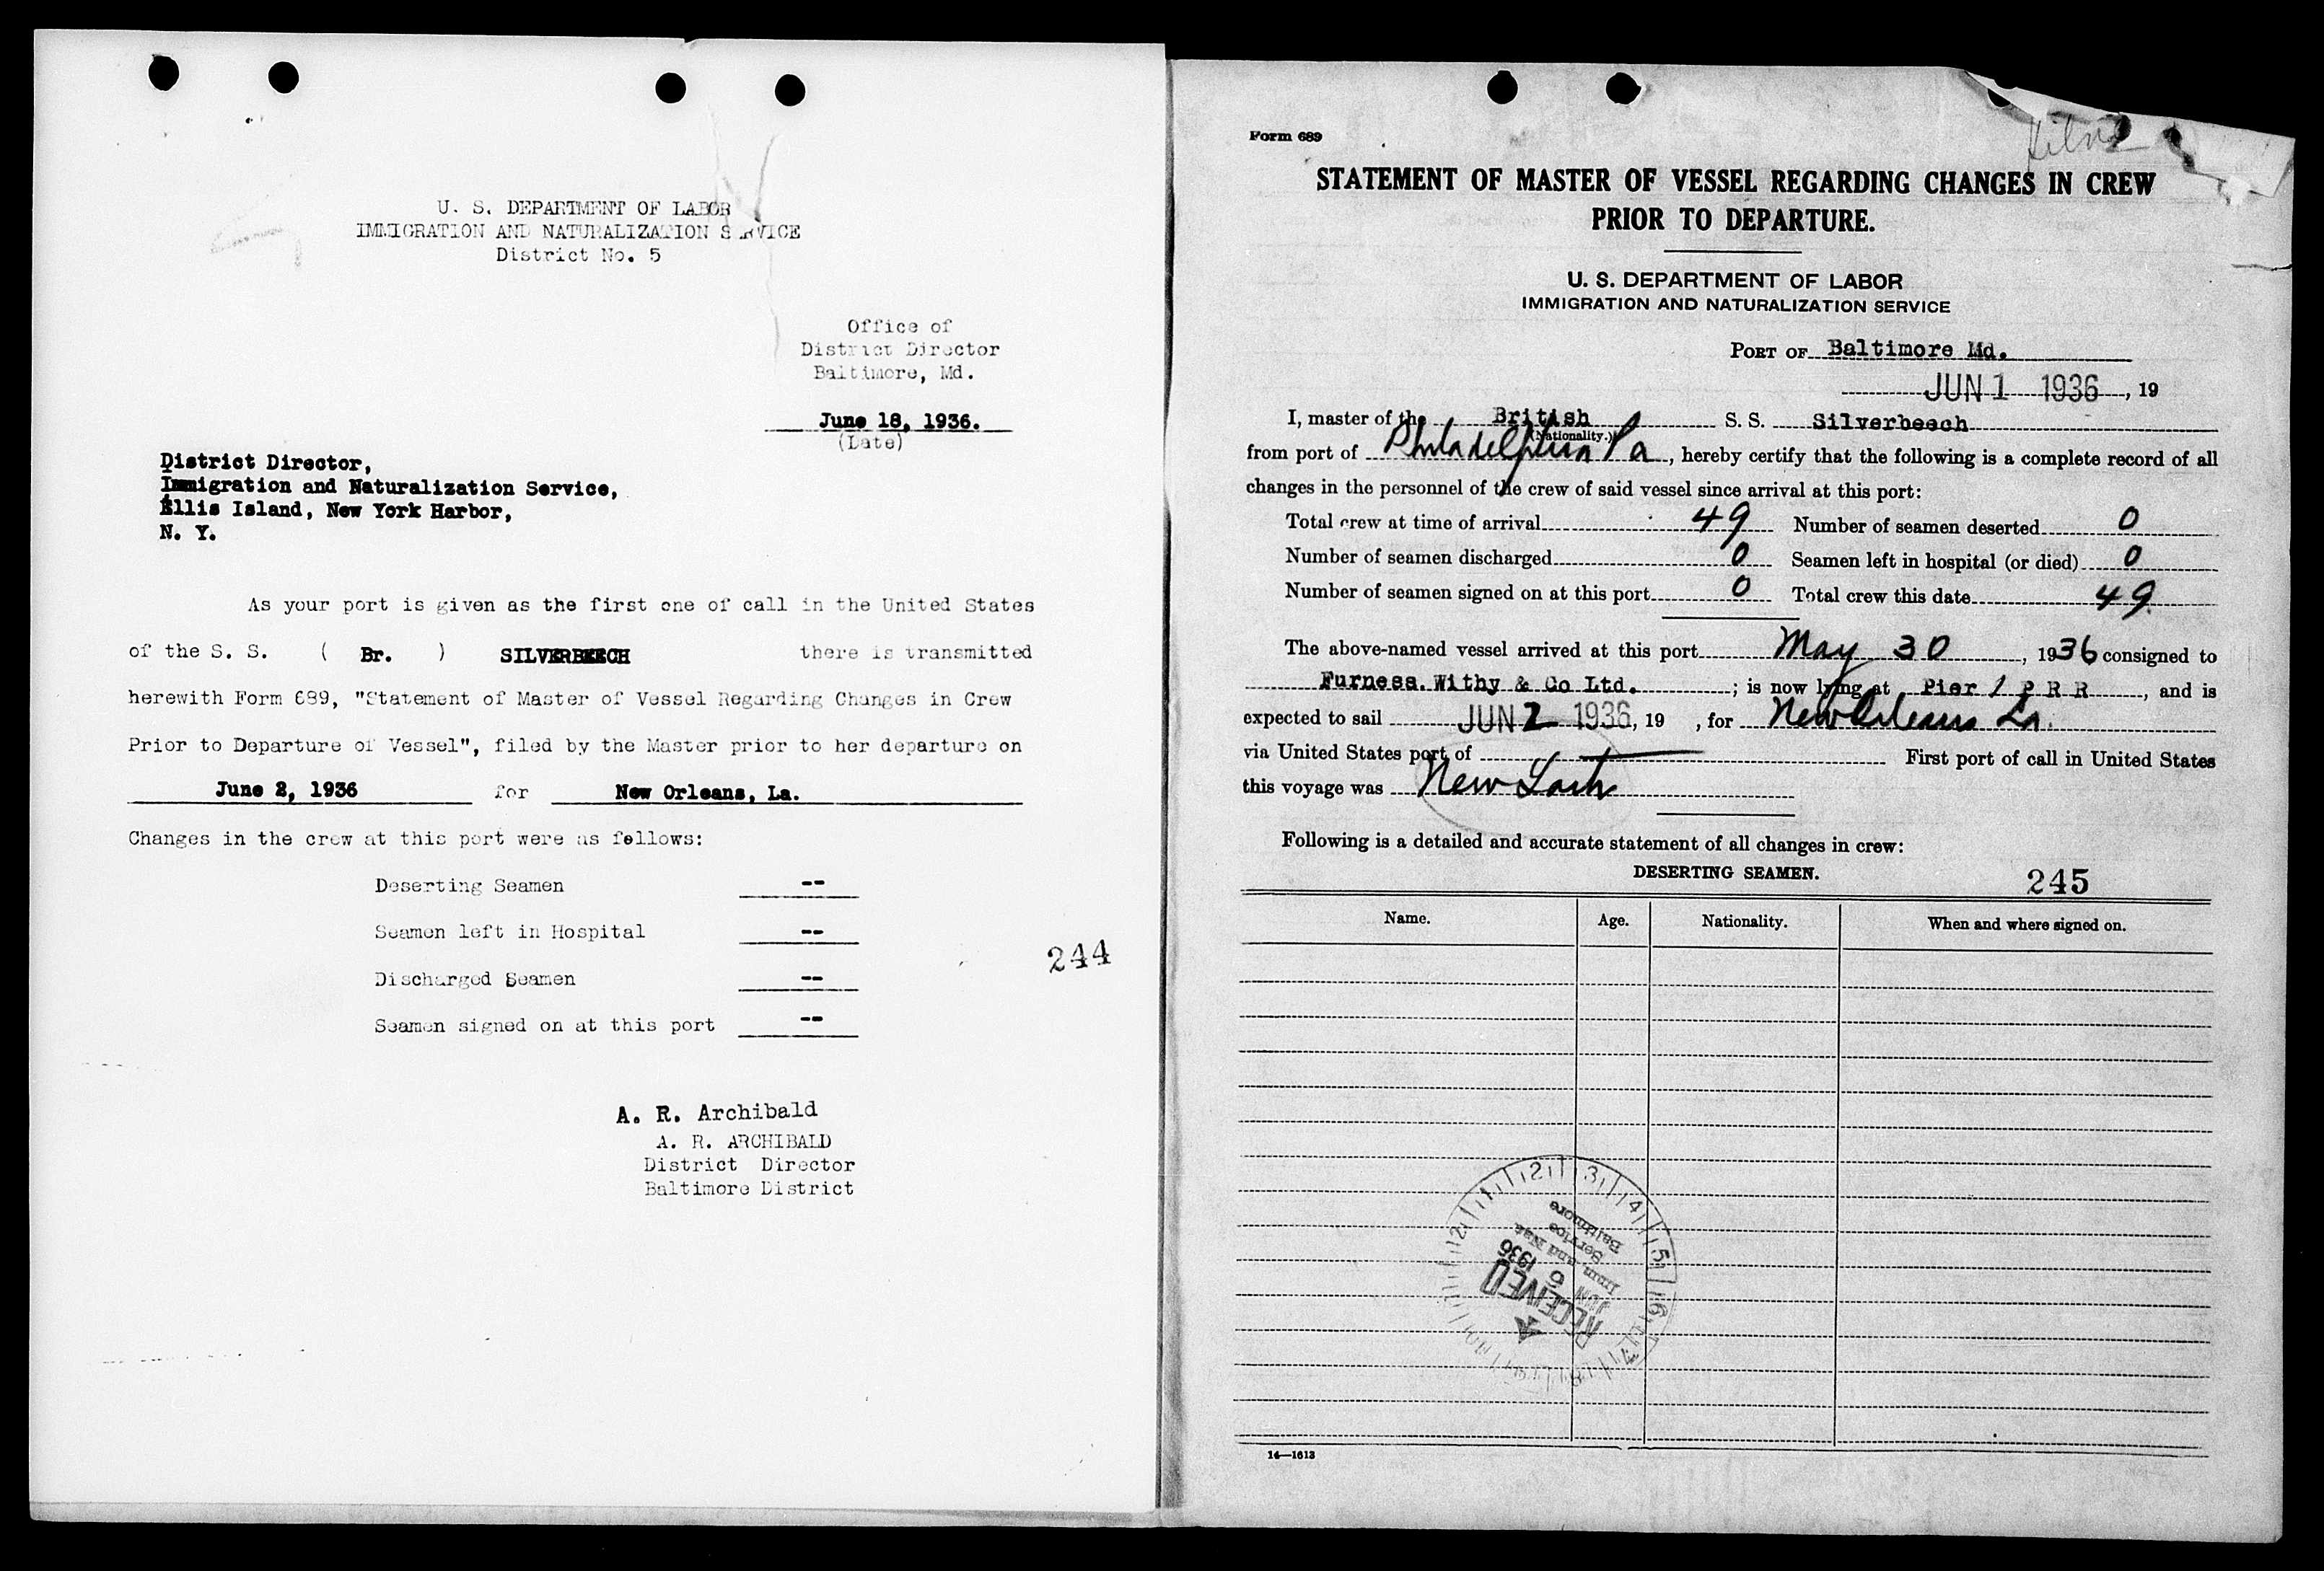 U. S. DEPARTMENT OF LABOR
IMMIGRATION AND NATURALIZATION SERVICE
District No. 5
Office of
District Director
Baltimore, Md.
June 18, 1936.
(Date)
District Director,
Immigration and Naturalization Service,
Ellis Island, New York Harbor,
N. Y.
As your port is given as the first one of call in the United States
of the S. S. ( Br. ) SILVERBEECH there is transmitted
herewith Form 689, "Statement of Master of Vessel Regarding Changes in Crew
Prior to Departure of Vessel", filed by the Master prior to her departure on
June 2, 1936 for New Orleans, La.
Changes in the crew at this port were as follows:
Deserting Seamen --
Seamen left in Hospital --
244
Discharged Seamen --
Seamen signed on at this port --
A. R. Archibald
A. R. ARCHIBALD
District Director
Baltimore District
Form 689
STATEMENT OF MASTER OF VESSEL REGARDING CHANGES IN CREW
PRIOR TO DEPARTURE.
U. S. DEPARTMENT OF LABOR
IMMIGRATION AND NATURALIZATION SERVICE
PORT OF Baltimore Md.
JUN 1 1936, 19
I, master of the British S. S. Silverbeech
(Nationality.)
from port of Philadelphia Pa, hereby certify that the following is a complete record of all
changes in the personnel of the crew of said vessel since arrival at this port:
Total crew at time of arrival 49 Number of seamen deserted 0
Number of seamen discharged 0 Seamen left in hospital (or died) 0
Number of seamen signed on at this port 0 Total crew this date 49
The above-named vessel arrived at this port May 30, 1936 consigned to
Furness. Withy & Co Ltd.; is now lying at Pier 1 P R R, and is
expected to sail JUN 2 1936, 19 , for New Orleans La.
via United States port of — First port of call in United States
this voyage was New York
Following is a detailed and accurate statement of all changes in crew:
DESERTING SEAMEN.
245
Name. Age. Nationality. When and where signed on.
RECEIVED
JUN 5 1936
Imm and Nat
Service
Baltimore
14—1613